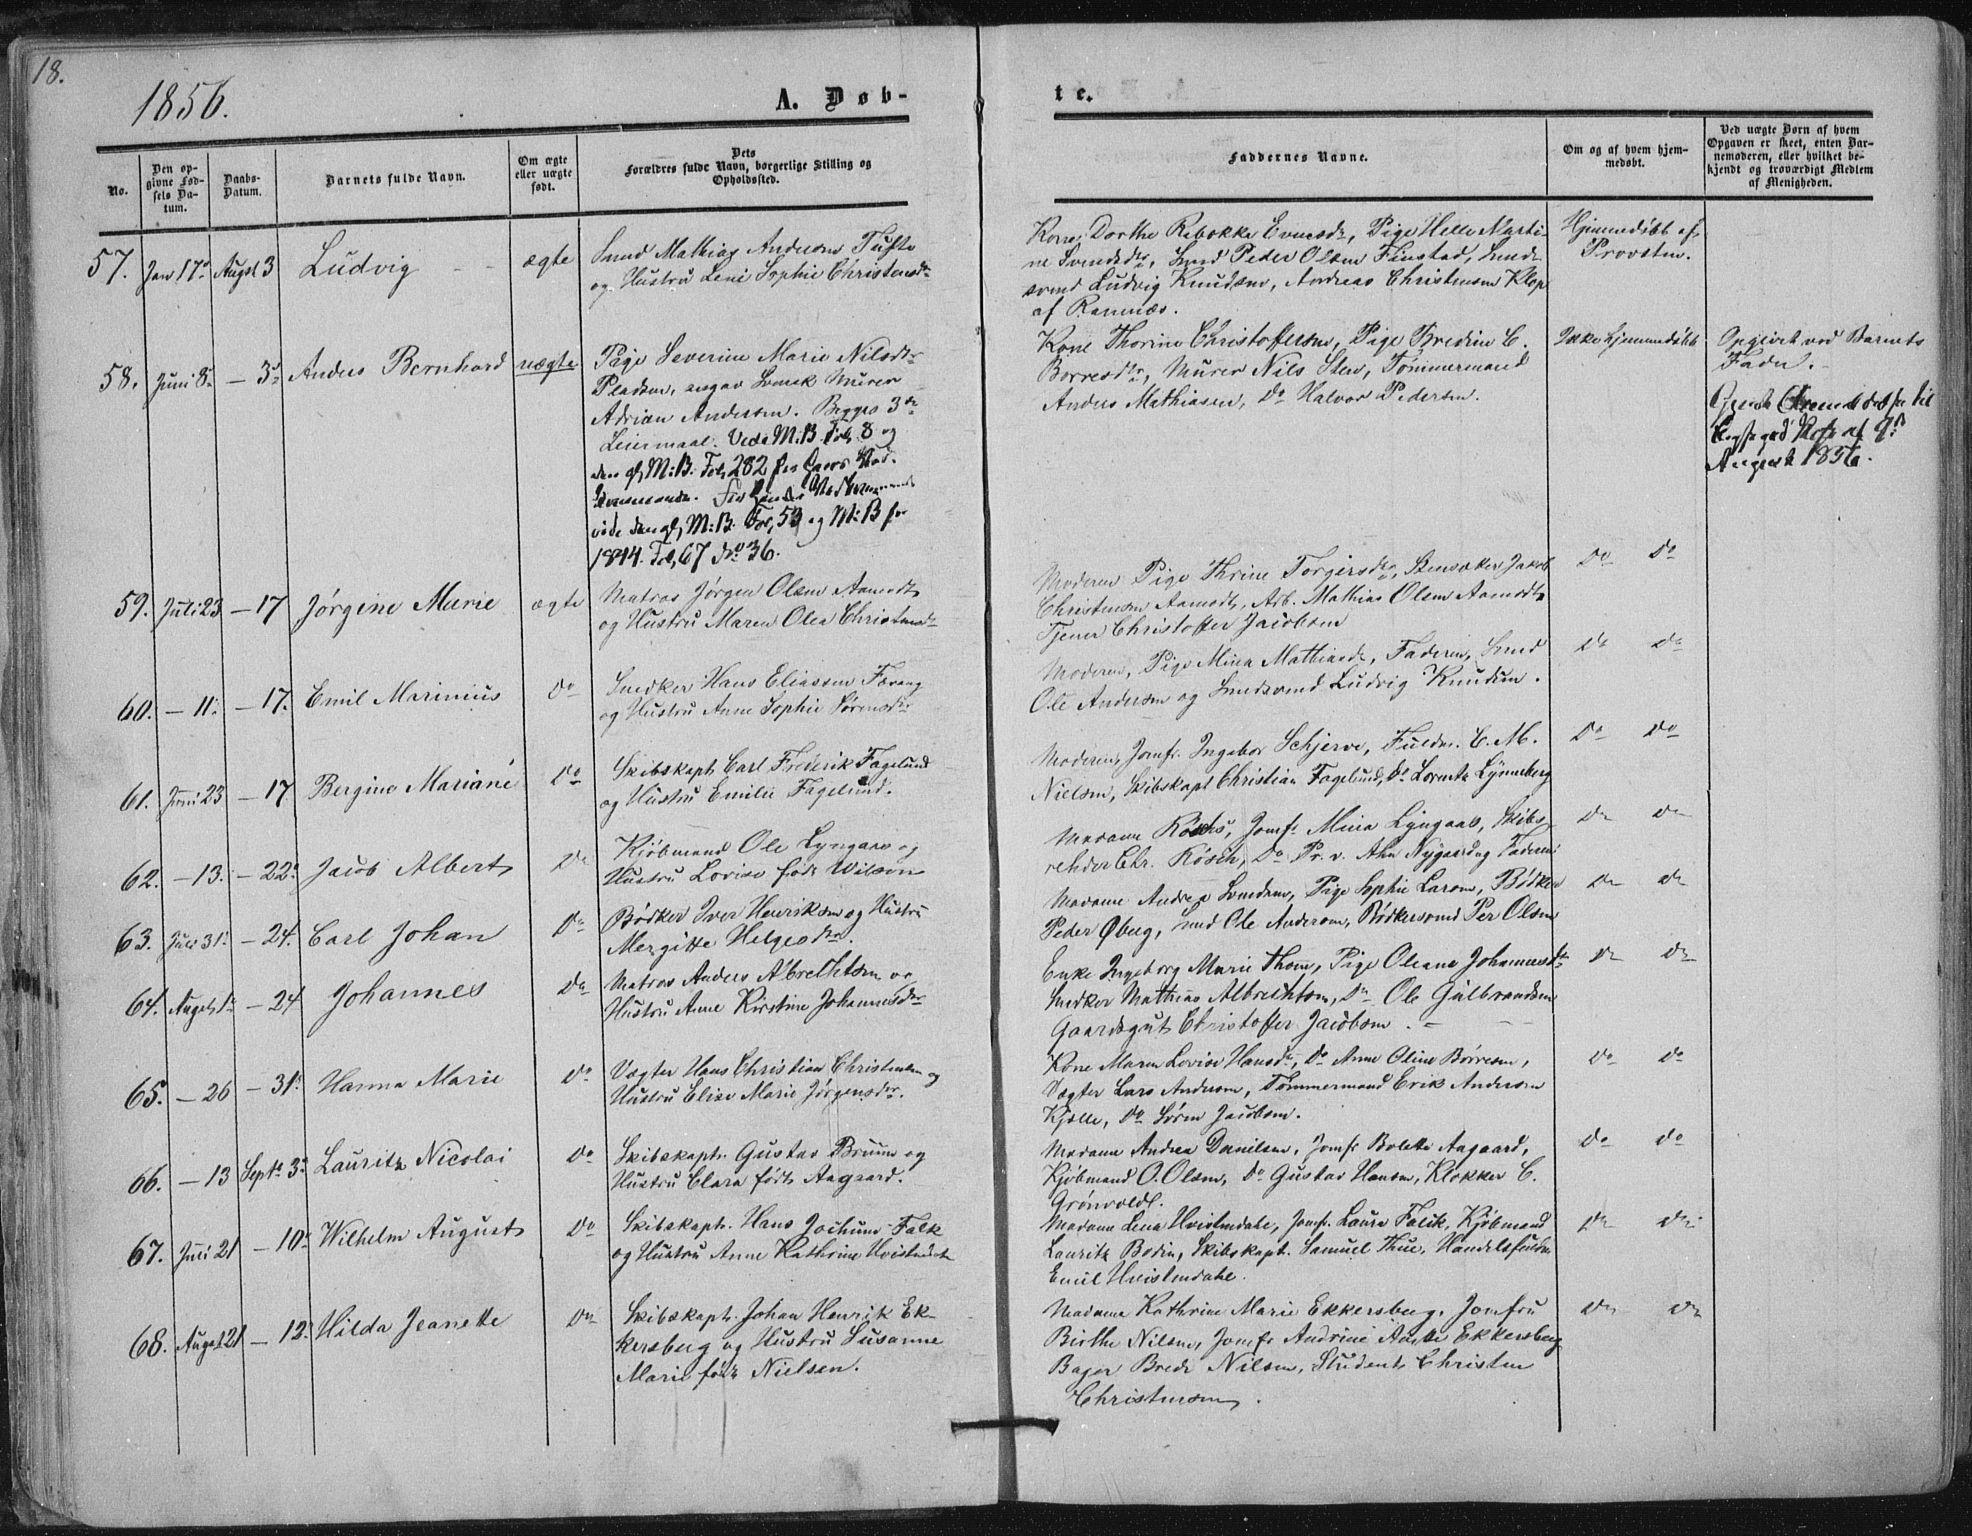 18.
1856.
A. Døb-
te.
No.
Den opgivne Fødsels Datum.
Daabs-Datum.
Barnets fulde Navn.
Om ægte eller uægte født.
Dets Forældres fulde Navn, borgerlige Stilling og Opholdssted.
Faddernes Navne.
Om og af hvem hjemmedøbt.
Ved uægte Børn af hvem Opgaven er skeet, enten Barnemoderen, eller hvilket bekjendt og troværdigt Medlem af Menigheden.
57. Jan 17. Augst 3 Ludvig ægte
Smed Mathias Andersen Tufte
og Hustru Leni Sophie Christensdr
Kone Dorthe Rebekke Evensdr, Pige Helle Marti-
ne Svendsdr, Smed Peder Olsen Finstad, Smede
svend Ludvig Knudsen, Andreas Christensen Klop
af Ramnæs.
Hjemmedøbt af
Provsten.
58. Juni 8. — 3. Anders Bernhard uægte
Pige Severine Marie Nilsdr
Pladsen, angav Svensk Murer
Adrian Andersen. Begges 3de
Leiermaal. Vide M.B. Fol. 8 og
den gl. M:B. Fol. 282 for
vide den gl. M:B. Fol. 53 og M:B for
1844. Fol. 67 No 36.
Kone Thorine Christoffersen, Pige Bredine C.
Borresdr, Murer Nils Sten, Tømmermand
Anders Mathiasen, Do Halvor Pedersen.
Ikke hjemmedøbt
Opgivet ved Barnets
Fader.
August 1856.
59. Juli 23 — 17 Jørgine Marie ægte
Matros Jørgen Olsen Aamodt
og Hustru Maren Olea Christensdr
Moderen Pige Thrine Torgersdr, Jakob
Christensen Aamodt, Arb. Mathias Olsen Aamodt
Tjener Christoffer Jacobsen
Do Do
60. — 11. — 17. Emil Marinius Do
Snedker Hans Eliassen Færang
og Hustru Anne Sophie Sørensdr
Moderen, Pige Mina Mathiasdr, Faderen, Smed
Ole Andersen og Smedsvend Ludvig Knudsen.
Do Do
61. Juni 23 — 17 Bergine Mariane Do
Skibskapt. Carl Frederik Fagelund
og Hustru Emilie Fagelund.
Moderen, Jomfr. Ingebor Schjerve, Fuldm. C. M.
Nielsen, Skibskapt Christian Fagelund, Do Lorentz Lynneberg
Do Do
62. — 13. — 22. Jacob Albert Do
Kjøbmand Ole Lyngaas og
Hustru Lovise født Wilson
Madame Røsch, Jomfr. Mina Lyngaas, Skibs
rehder Chr. Røsch, Do Pr. v. Ahn Nygaard og Faderen
Do Do
63. Juli 31. — 24. Carl Johan Do
Bødker Iver Henriksen og Hustru
Mergitte Helgesdr.
Madame Andrea Svendsen, Pige Sophie Larsen, Bødker
Peder Øberg, Smed Ole Andersen, Bødkersvend Per Olsen
Do Do
64. Augst 1. — 24 Johannes Do
Matros Anders Albrechtsen og
Hustru Anne Kirstine Johannesdr
Enke Ingeborg Marie Thom, Pige Oleana Johannesdr
Snedker Mathias Albrechtsen, Do Ole Gulbrandsen
Gaardsgut Christoffer Jacobsen.
Do Do
65. — 26 — 31. Hanna Marie Do
Vægter Hans Christian Christensen og
Hustru Elise Marie Jørgensdr.
Kone Maren Lovise Hansdr, Do Anne Oline Børresen,
Vægter Lars Andersen, Tømmermand Erik Andersen
Kjølle, Do Søren Jacobsen.
Do Do
66. — 13 Septr. 3. Lauritz Nicolai Do
Skibskapt. Gustav Bruun og
Hustru Clara født Aagaard.
Madame Andrea Danielsen, Jomfr Bolette Aagaard,
Kjøbmand O. Olsen, Do Gustav Hansen, Klokker C.
Grønvold.
Do Do
67. Juli 21 — 10. Wilhelm August Do
Skibskapt. Hans Jochum Falk
og Hustru Anne Kathrine Hvistendahl
Madame Lena Hvistendahl, Jomfr. Laura Falck, Kjøbmand
Lauritz Bodin, Skibskapt. Samuel Thue, Handelsfuldm
Emil Hvistendahl.
Do Do
68. August 21 — 12. Hilda Jeanette Do
Skibskapt. Johan Henrik Ek-
kersberg og Hustru Susanne
Marie født Nielsen.
Madame Kathrine Marie Ekkersberg, Jomfru
Birthe Nilsen, Jomfr Andrine Ekkersberg
Bager Brede Nilsen, Student Christen
Christensen.
Do Do